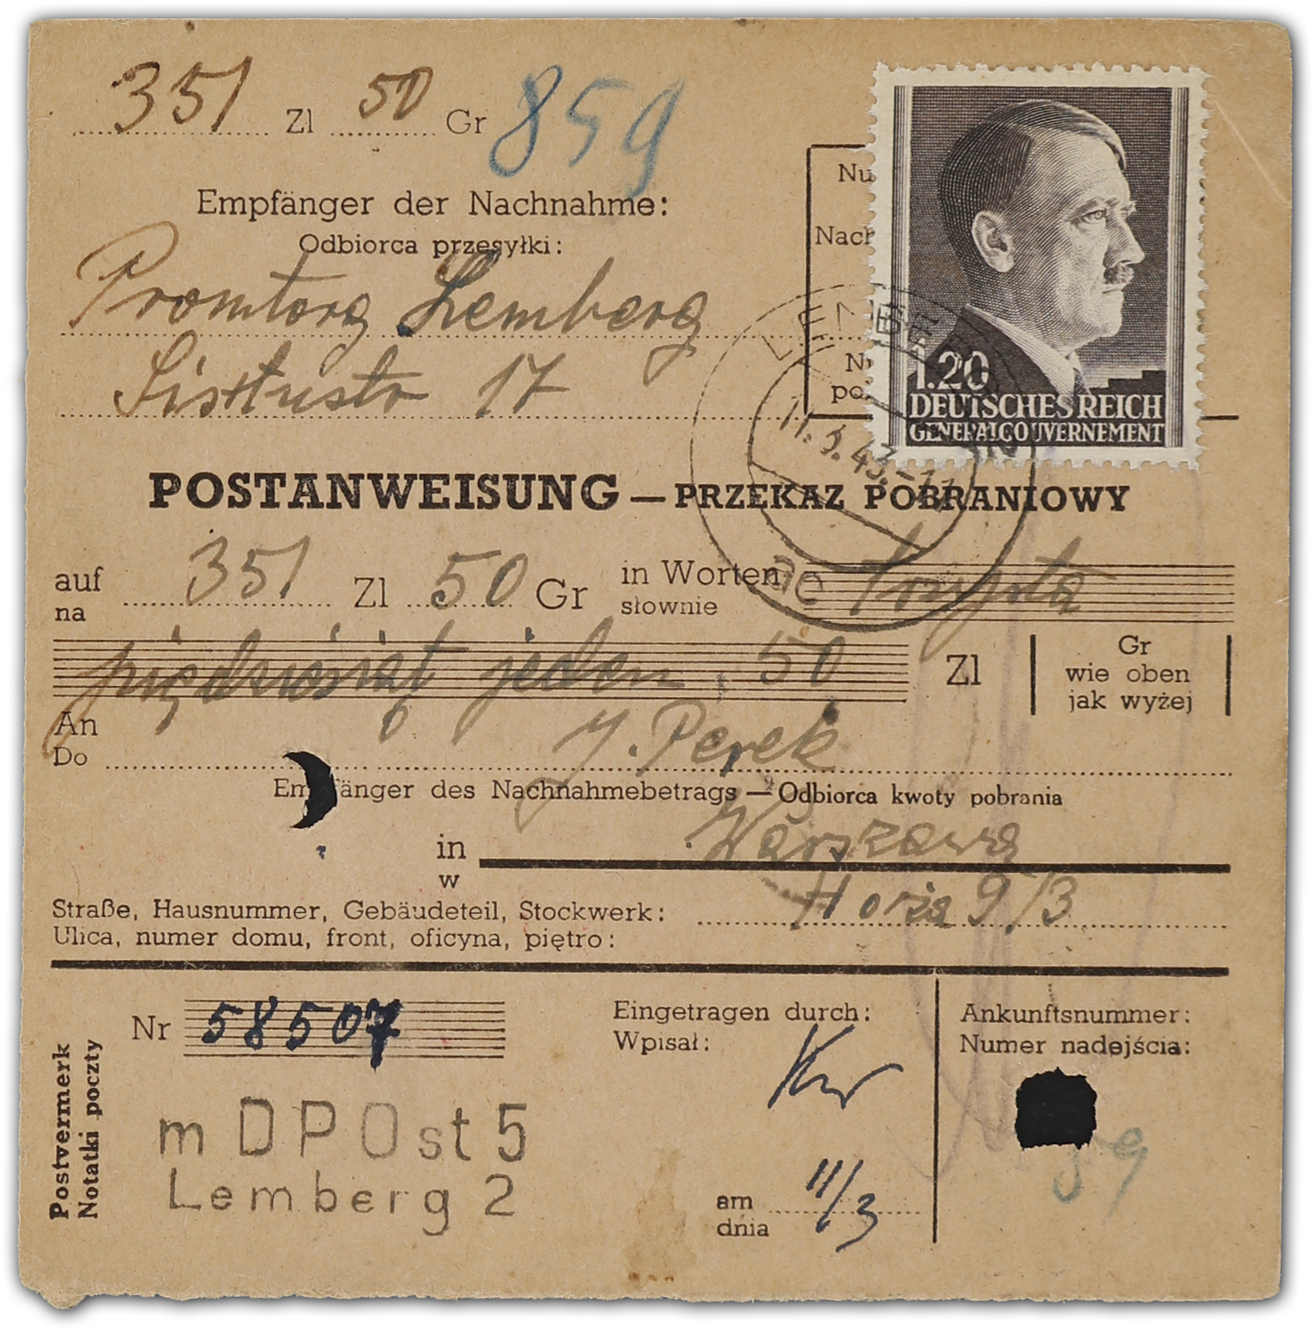 351 Zl 50 Gr 859
Empfänger der Nachnahme:
Odbiorca przesyłki:
Promtorg Lemberg
Sixtusstr 17
Nu
Nach
po
1.20
DEUTSCHES REICH
GENERALGOUVERNEMENT
LEMBERG
11.3.43.-11
2c
POSTANWEISUNG — PRZEKAZ POBRANIOWY
auf 351 Zl 50 Gr in Worten trzysta
na słownie
pięćdziesiąt jeden, 50 Zl
Gr
wie oben
jak wyżej
An
Do J. Perek
Empfänger des Nachnahmebetrags — Odbiorca kwoty pobrania
in Warszawa
w
Straße, Hausnummer, Gebäudeteil, Stockwerk: Hoża 9/3
Ulica, numer domu, front, oficyna, piętro:
Postvermerk
Notatki poczty
Nr 58507
Eingetragen durch:
Wpisał:
Ankunftsnummer:
Numer nadejścia:
59
m DPOst 5
Lemberg 2
am 11/3
dnia